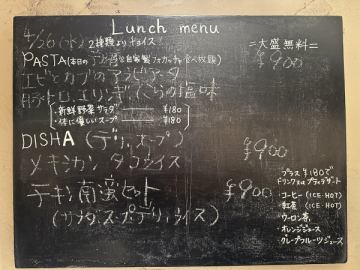 Lunch menu
4/26(水) 2種類よりチョイス
=大盛無料=
PASTA(本日のデリ2種と自家製フォカッチャ食べ放題) ¥900
エビとカブのアラビアータ
豚トロとエリンギ、くらの塩味
・新鮮野菜サラダ ¥180
・体に優しいスープ ¥180
DISHA (デリ,スープ) ¥900
メキシカンタコライス
チキン南蛮セット ¥900
(サラダ,スープ,デリ,ライス)
プラス¥180で
ドリンク又はプティデザート
・コーヒー(ICE・HOT)
・紅茶 (ICE・HOT)
・ウーロン茶
・オレンジジュース
・グレープフルーツジュース